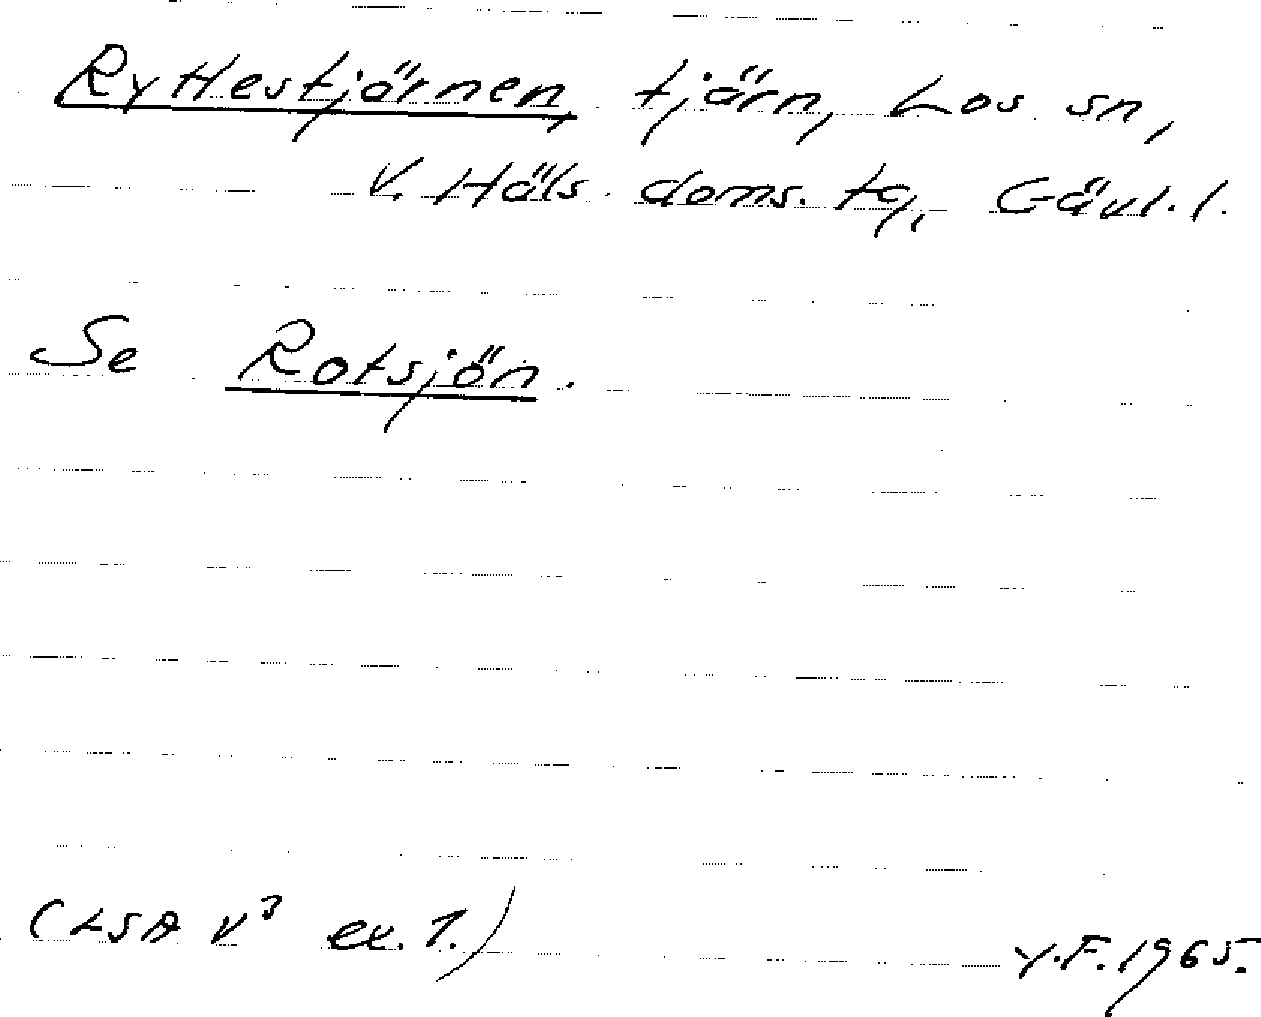 Ryttestjärnen, tjärn, Los sn,
V. Häls. doms. tg, Gävl. l.
Se Rotsjön.
(LSA V³ ex. 1.)
Y.F. 1965.